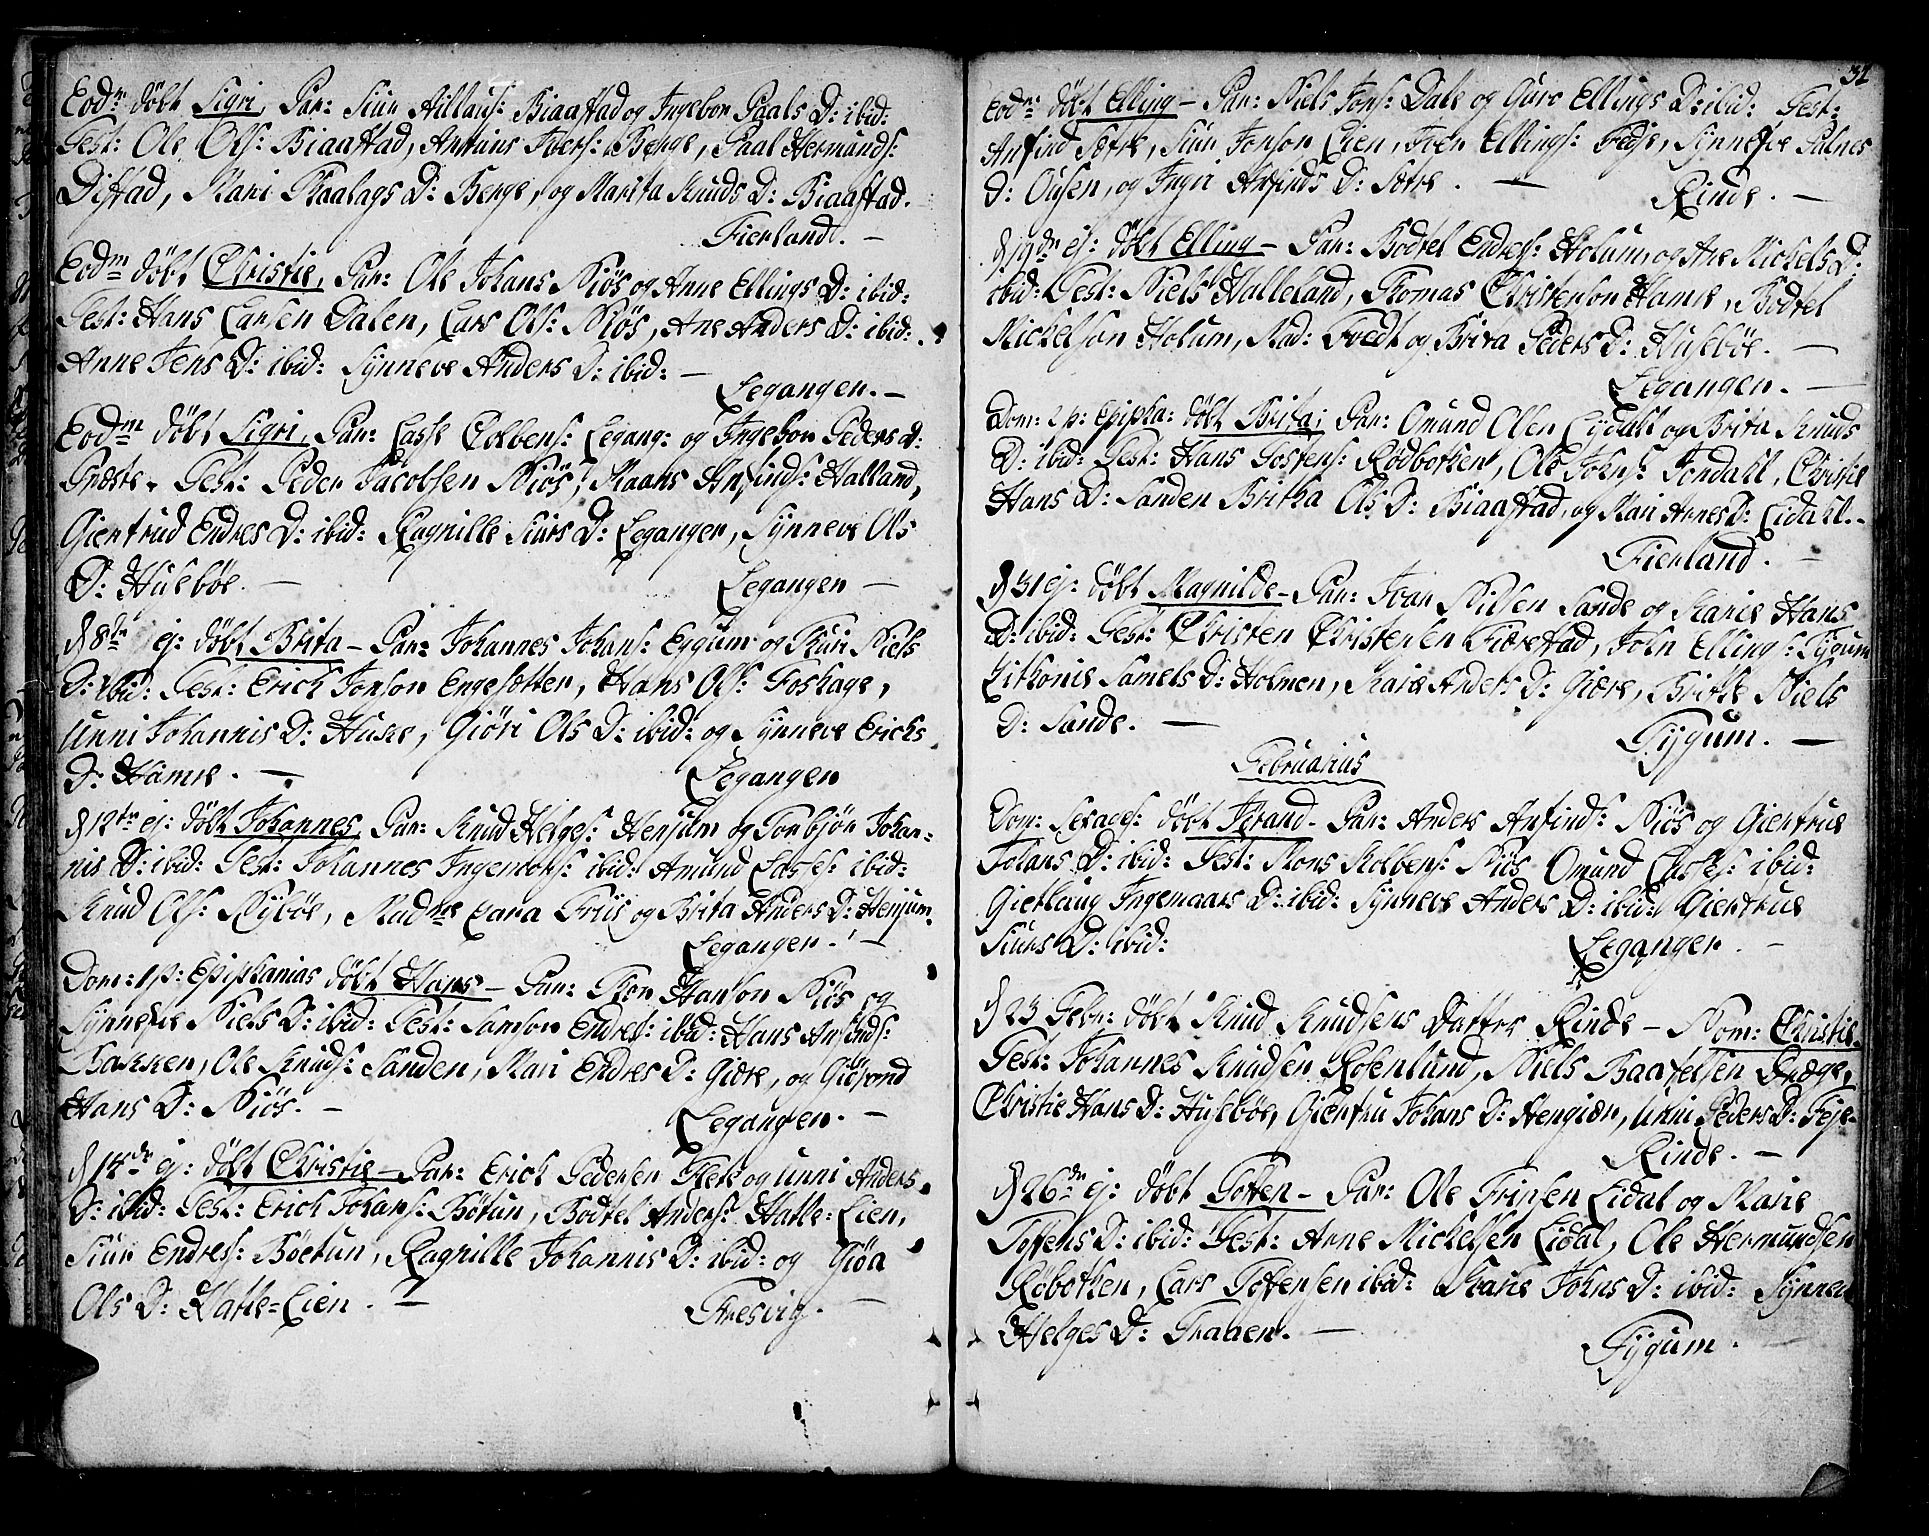 Eod.m döbt Sigri, Par: Siur Aillaus: Biaastad og Ingebor Paals D: ibid:
Test: Ole Ols: Biaastad, Ivers: Berge, Paal Hermunds:
Distad, Mari D: Berge, og Marita Knuds D: Biaastad.
Fierland. –
Eod.m döbt Christie, Par: Ole Johans Niös og Anne Ellings D: ibid:
Test: Hans Larsen Dalen, Lars Ols: Niös, Ane Anders D: ibid:
Anne Jens D: ibid: Synneve Anders D: ibid: –
Leganger. –
Eod.m döbt Sigri, Par: Lasse Colbens: Legang: og Ingebor Peders D:
Test: Peder Jacobsen Niös, Maans Anfinds: Halland,
Giertrud Endres D: ibid: Ragnille Siurs D: Leganger, Synneve Ols
D: Husebøe. –
Leganger –
d 8de ej: döbt Brita – Par: Johannes Johans: Eggum og Kari Niels
D: ibid: Test: Erich Jonson Engesætter, Hans Ols: Foshage,
Unni Johannis D: Husee, Giöri Ols D: ibid: og Synneve Erichs
D: Hamre. –
Leganger
d 12te ej: döbt Johannes, Par: Knud Helges: Henjum og Torbjör Johan-
nis D: ibid: Test: Johannes ibid: Amund Lasses: ibid:
Knud Ols: Nybøe, Mad.me Cara Friis og Brita Anders D: Henjum.
Leganger. –
Dom: 1 p: Epiphanias döbt Hans – Par: Hanson Niös og
Synneve Niels D: ibid: Test: Samson Endres: ibid: Hans Anfinds:
Bakken, Ole Knuds: Sanden, Mari Endres D: Giære, og
Hans D: Niös. –
Leganger. –
d 14de ej: döbt Christie – Par: Erich Pedersen Flete og Unni Anders
D: ibid: Test: Erich Johans: Bötun, Bodtel Anders: Hatle=Lien,
Siur Endres: Böetun, Ragnille Johannis D: ibid: og Giöa
Ols D: Hatle=Lien. –
Fresvig. –
34
Eod.m döbt Elling – Par: Niels Jons: Dale og Guro Ellings D: ibid: Test:
Anfind Sætre, Siur Jonson Lien, Iver Ellings: Fedje, Synneve
D: Olsen, og Ingri Anfinds D: Sætre. –
Rinde. –
d 19de ej: döbt Elling – Par: Bodtel Endres: Holum, og Ane Mickels D:
ibid: Test: Niels Halleland, Thomas Christenson Hamre, Bodtel
Mickelson Holum, Mad: Tvedt og Brita Peders D: Husebøe. –
Leganger. –
Dom: 2 p: Epipha: döbt Brita; Par: Omund Olsen Lidahl og Brita Knuds
D: ibid: Test: Hans Tostens: Rödbotten, Ole Johns: Jondahl, Christie
Hans D: Sanden Britha Ols D: Biaastad, og Mari Arnes D: Lidahl. –
Fierland. –
d 31 ej: döbt Magnilde – Par: Ivar Nilsen Sande og Marie Hans
D: ibid: Test: Christen Christensen Fiærestad, John Ellings: Tygum
Samels D: Holmen, Marie Anders D: Giære, Britte Niels
D: Sande. –
Tygum. –
Februarius
Dom: Sexages: döbt Jörand – Par: Anders Anfinds: Niös og Giertrue
Johans D: ibid: Test: Mons Kolbens: Niös Omund Lasses: ibid:
Giertlaug Ingemaars D: ibid: Synneve Anders D: ibid: Giertrue
Siurs D: ibid:
Leganger. –
d 23 Febr: döbt Knud Knudsens Datter Rinde – Nom: Christie.
Test: Johannes Knudsen Rosenlund, Niels Baartelsen
Christie Hans D: Husebøe, Giertru Johans D: Unni Peders D: Feje –
Rinde. –
d 26de ej: döbt Tosten – Par: Ole Lidal og Marie
Tostens D: ibid: Test: Arne Mickelsen Lidal, Ole Hermundsen
Röbotten, Lars Tostensen ibid: Marie Johns D: ibid: Synneve
Helges D: –
Tygum. –